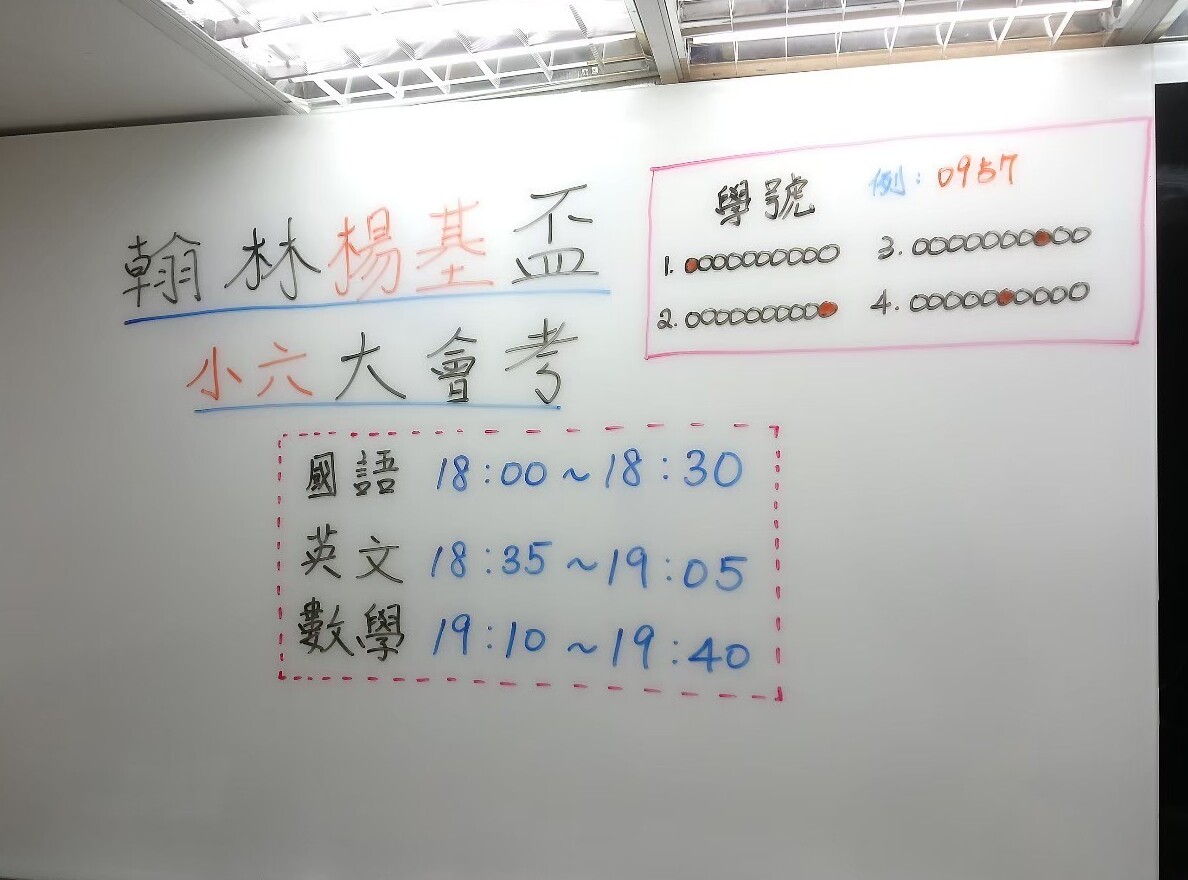 翰林楊基盃
小六大會考
學號 例:0957
1. ●○○○○○○○○○ 3. ○○○○○○○●○○
2. ○○○○○○○○○● 4. ○○○○○●○○○○
國語 18:00~18:30
英文 18:35~19:05
數學 19:10~19:40